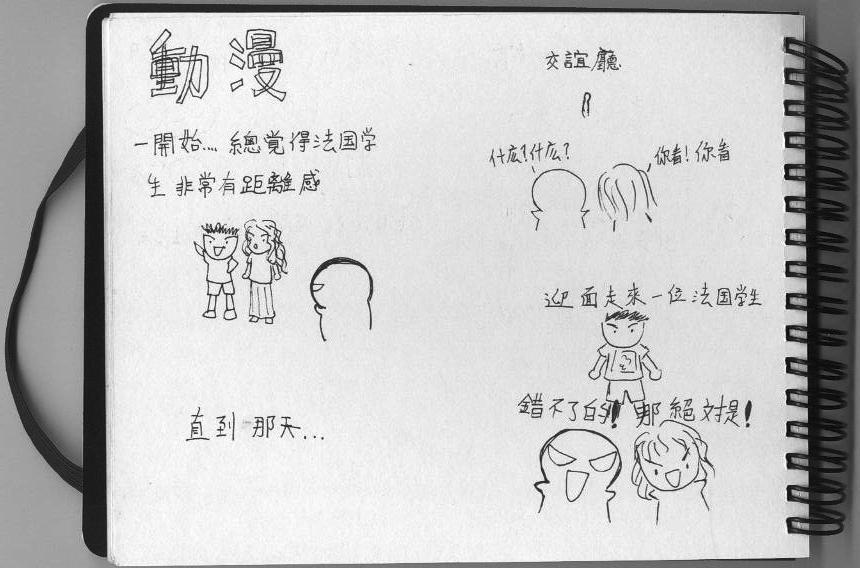 動漫
一開始... 總覺得法国学
生非常有距離感
直到那天...
交誼廳
什広?什広?
你看!你看
迎面走來一位法国学生
錯不了的!那絕対是!